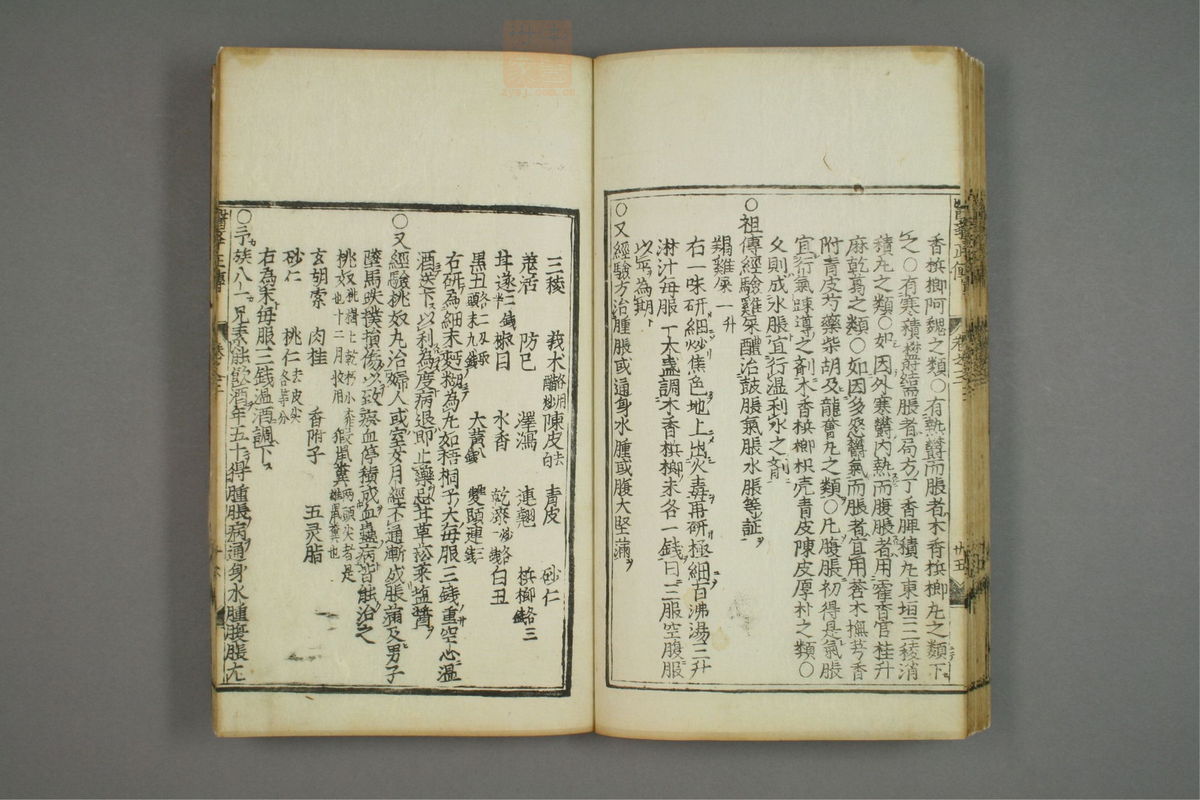 香檳榔阿魏之類○有熱鬱而脹者木香檳榔丸之類下
之○有寒積鬱結而脹者局方丁香脾積丸東垣三稜消
積丸之類○如因外寒鬱內熱而腹脹者用藿香官桂升
麻乾葛之類○如因多怒鬱氣而脹者宜用蒼木撫芎香
附青皮芍藥柴胡及龍薈丸之類○凡腹脹初得是氣脹
宜行氣踈導之剤木香檳榔枳壳青皮陳皮厚朴之類○
久則成水脹宜行溫利水之剤
○祖傳經驗雞屎醴治鼓脹氣脹水脹等証
羯雞屎一升
右一味研細炒焦色地上出火毒再研極細百沸湯三升
淋汁毎服一大盞調木香檳榔末各一錢日三服空腹服
以平為期
○又經驗方治腫脹或通身水腫或腹大堅滿
三稜 莪朮 陳皮去白 青皮 砂仁
羗活 防己 澤瀉 連翹 檳榔各三錢
甘遂二錢 椒目 木香 乾漆 白丑
黑丑 頭末九錢 大黃八錢 雙頭連三錢
右研為細末麪糊為丸如梧桐子大每服三錢重空心溫
酒送下以利為度病退即止藥忌甘草菘菜塩醬
○又經驗桃奴丸治婦人或室女月經不通漸成脹滿及男子
墜馬跌撲損傷以致瘀血停積成血蠱病皆能治之
桃奴 豭鼠糞兩頭尖者是雄鼠糞也
玄胡索 肉桂 香附子 五灵脂
砂仁 桃仁去皮尖各等分
右為末每服三錢溫酒調下
○予族八一兄素能飲酒年五十得腫脹病通身水腫腹脹尤